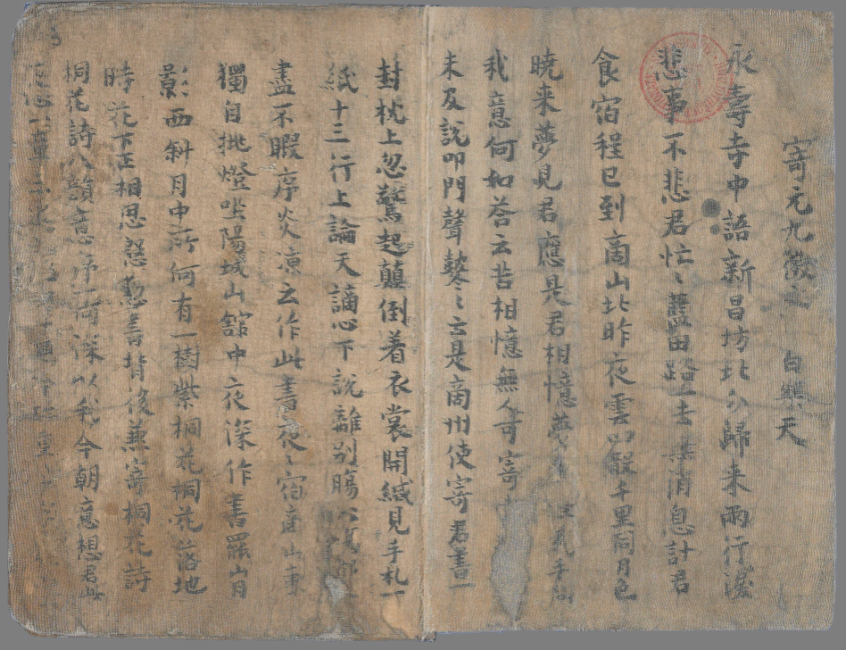 寄元九微之 白樂天
永壽寺中語新昌坊北分歸來兩行淚
悲事不悲君忙〻藍田路去無消息計君
食宿程已到商山北昨夜雲四散千里同月色
曉來夢見君應是君相憶夢 君手問
我意何如荅云苦相憶無人可寄書
未及說叩門聲鼕〻云是商州使寄君書一
封枕上忽驚起顛倒着衣裳開緘見手札一
紙十三行上論天謫心下說離別腸心腸都
盡不暇序炎涼云作此書夜〻宿商山東
獨自挑燈坐陽城山舘中夜深作書罷山月
影西斜月中所何有一樹紫桐花桐花落地
時花下正相思慇懃書背後兼寄桐花詩
桐花詩八韻意序何深以我今朝意想君此